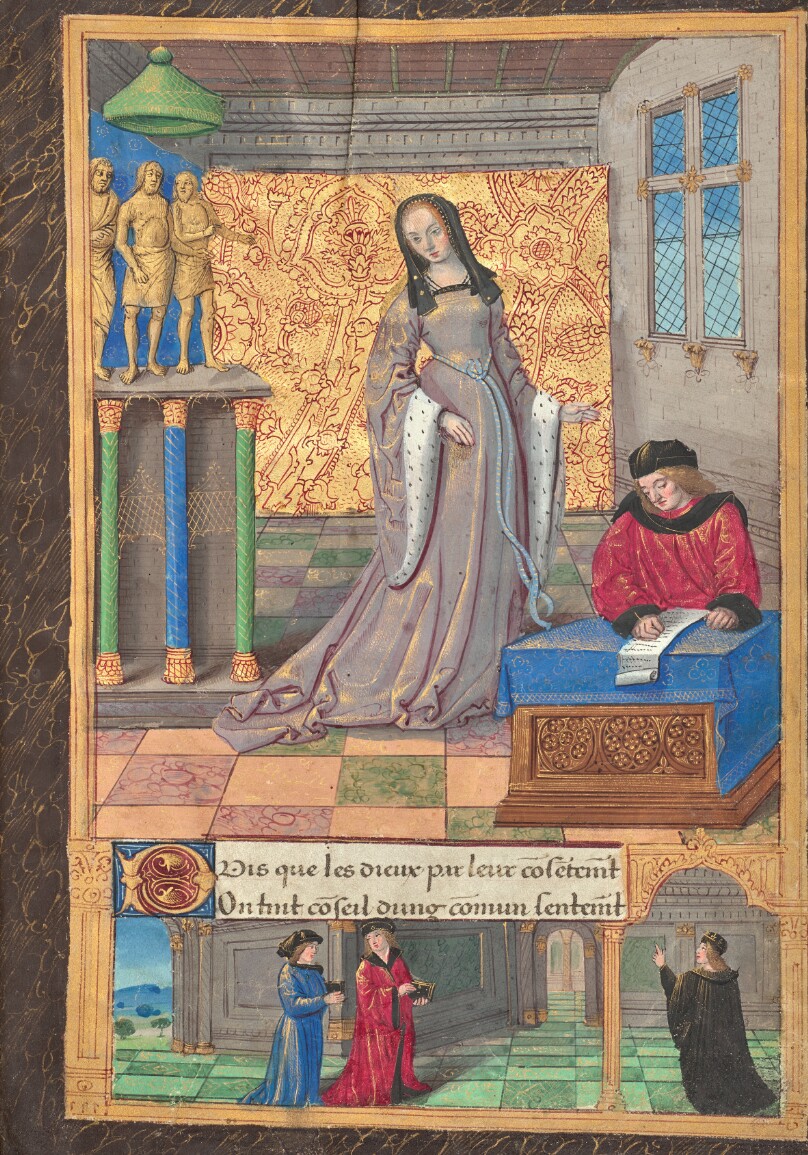 PVis que les dieux par leur cõsẽtemẽt
On tint cõseil dung cõmun sentemẽt